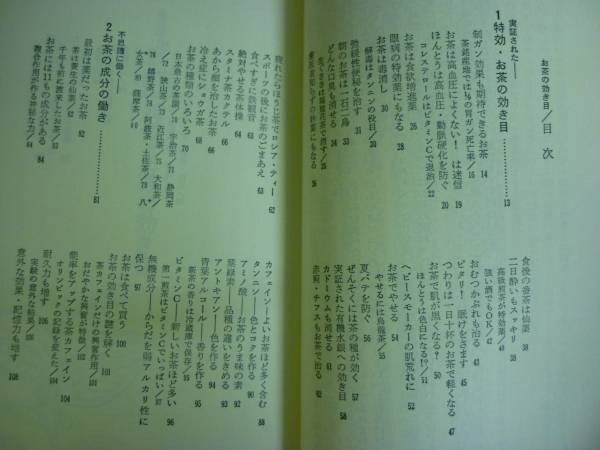 お茶の効き目/目 次
実証された――
1 特効・お茶の効き目……………13
制ガン効果も期待できるお茶 14
茶銘産地では1/5の胃ガン死亡率/16
お茶は高血圧によくない！ は迷信 19
ほんとうは高血圧・動脈硬化を防ぐ 20
コレステロールはビタミンCで退治/22
お茶は食欲増進薬 24
眼病の特効薬にもなる 26
お茶は毒消し 28
解毒はタンニンの役目/30
習慣性便秘を治す 31
朝のお茶は一石二鳥 33
どんな口臭も消せる 34
食後の番茶は仙薬 38
二日酔いもスッキリ 39
高級煎茶が特効薬/41
強い酒でもOK/43
おむつかぶれも治る 43
ピタリ！ 眠けをさます 45
つわりは一日十杯のお茶で軽くなる 47
お茶で肌が黒くなる？ 50
ほんとうは色白になる!?/51
ヘビースモーカーの肌荒れに 52
お茶でやせる 54
やせるには烏龍茶/55
夏バテを防ぐ 56
ぜんそくにはお茶の種が効く 57
実証された有機水銀への効き目 58
カドミウムも消せる 61
赤痢・チフスもお茶で治る 62
疲れたらほうじ茶でロシア・ティー 62
スポーツの後にお茶のごまあえ 63
食べすぎに鉄観音 68
絶対やせる茶体操
スタミナ茶カクテル 66
あから顔を治したお茶 68
冷え症にショウガ茶 68
お茶の種類のいろいろ 70
日本最古の茶園/70 宇治茶/71 静岡茶
/72 狭山茶/75 近江茶/75 大和茶/
76 嬉野茶/78 阿波茶・土佐茶/79 八
女茶/80 薩摩茶/80
不思議に働く――
2 お茶の成分の働き……………81
最初は薬だったお茶 82
茶は養生の仙薬/82
千年も前に渡来したお茶/83
お茶には11もの成分がある 84
複合作用が作る神秘な力/84
カフェイン――よいお茶ほど多く含む 88
タンニン――色とコクを作る 90
アミノ酸――お茶のうま味の素 92
葉緑素――品種の違いをきめる 93
アントキアン――色を作る 94
青葉アルコール――香りを作る 95
新茶の香りは冷蔵庫で保存/95
ビタミンC――新しいお茶ほど多い 96
第一煎茶はビタミンCでいっぱい/97
無機成分――からだを弱アルカリ性に
保つ 97
お茶は食べて買う 100
お茶の効き目の謎を解く 101
茶カフェインだけの興奮作用/101
おだやかな興奮が特徴/103
能率をアップする茶カフェイン 104
オリンピックの記録を変えた/104
耐久力も増す 106
実験の意外な結果/106
意外な効果・記憶力も増す 108